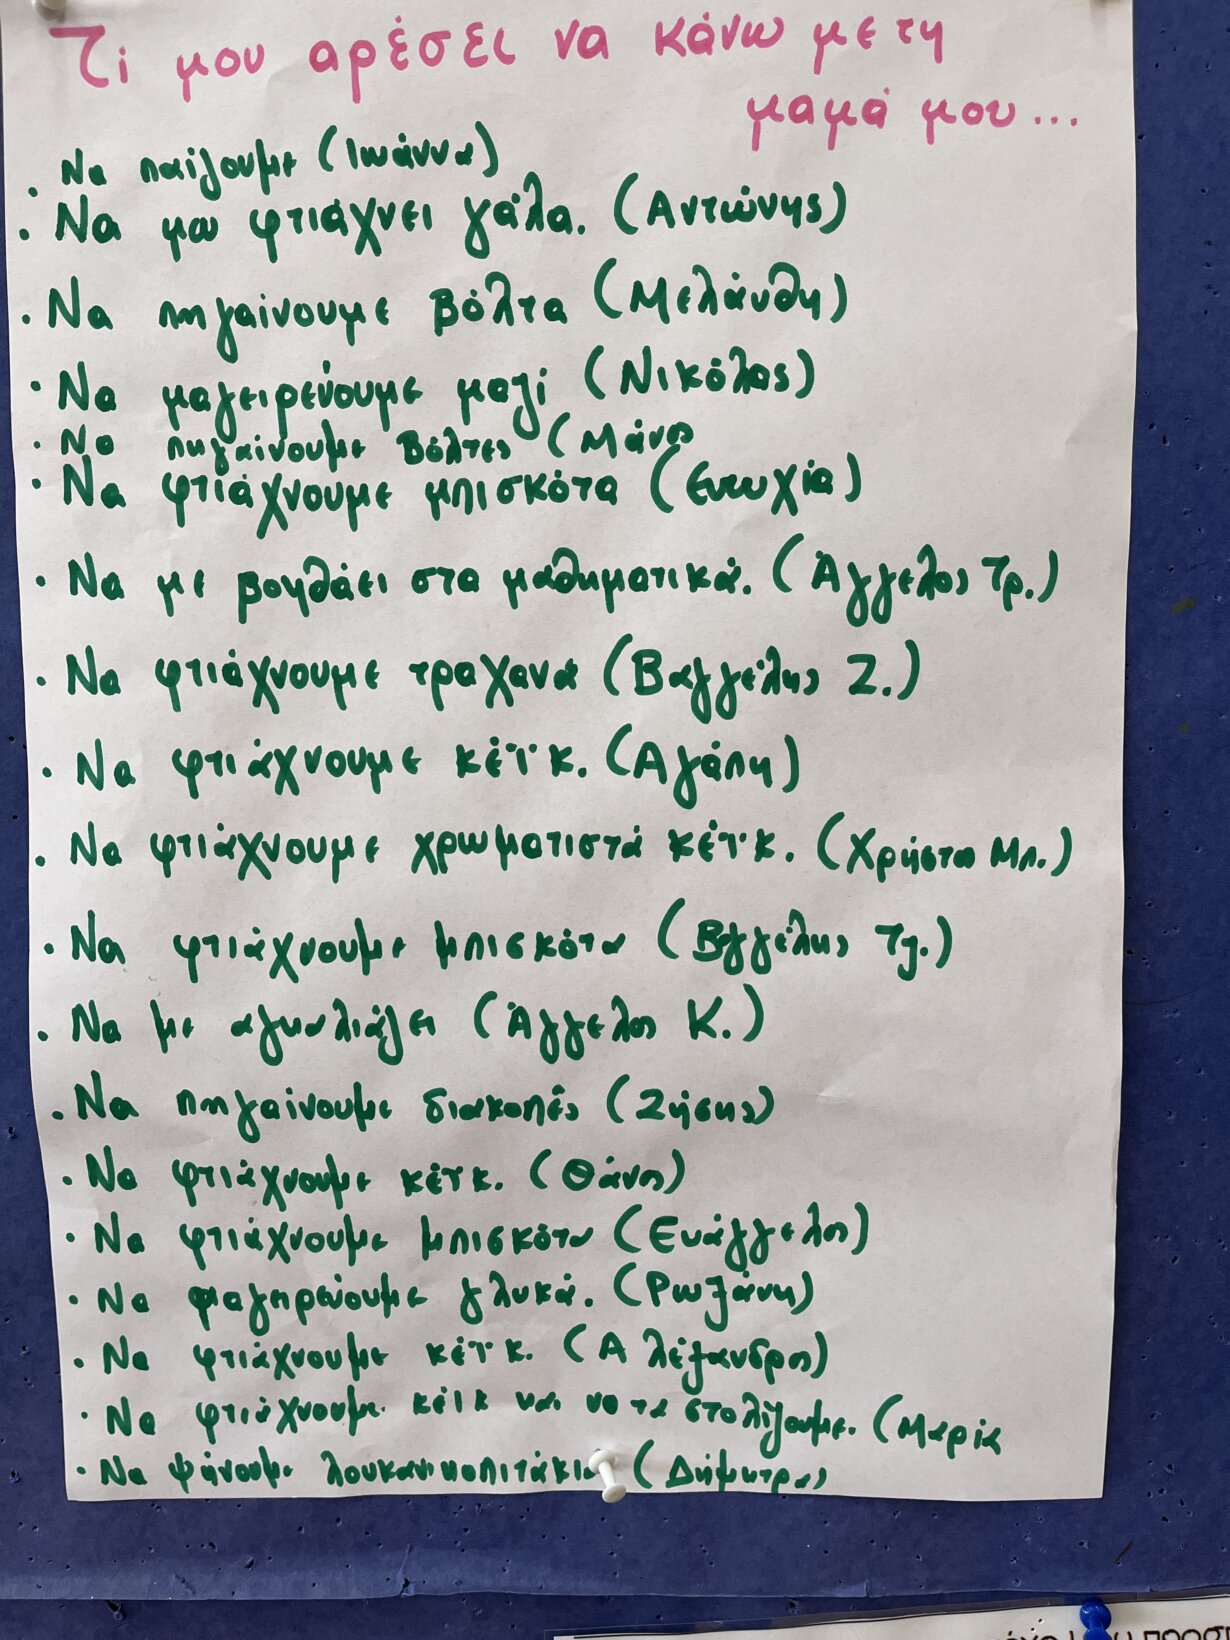 Τί μου αρέσει να κάνω με τη
μαμά μου...
· Να παίζουμε (Ιωάννα)
· Να μου φτιάχνει γάλα. (Αντώνης)
· Να πηγαίνουμε βόλτα (Μελάνθη)
· Να μαγειρεύουμε μαζί (Νικόλας)
· Να πηγαίνουμε βόλτες (Μάνος
· Να φτιάχνουμε μπισκότα (Ευτυχία)
· Να με βοηθάει στα μαθηματικά. (Άγγελος Τρ.)
· Να φτιάχνουμε τραχανά (Βαγγέλης Ζ.)
· Να φτιάχνουμε κέϊκ. (Αγάπη)
· Να φτιάχνουμε χρωματιστά κέϊκ. (Χρήστος Μπ.)
· Να φτιάχνουμε μπισκότα (Βαγγέλης Τζ.)
· Να με αγκαλιάζει (Άγγελος Κ.)
· Να πηγαίνουμε διακοπές (Ζήσης)
· Να φτιάχνουμε κέϊκ. (Θάνος)
· Να φτιάχνουμε μπισκότα (Ευάγγελος)
· Να μαγηρεύουμε γλυκά. (Ρωξάνη)
· Να φτιάχνουμε κέϊκ. (Αλέξανδρος)
· Να φτιάχνουμε κέικ και να τα στολίζουμε. (Μαρία
· Να ψήνουμε λουκανικοπιτάκια (Δήμητρα)